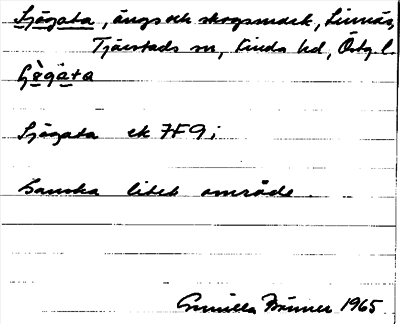 Sjögata, ängs och skogsmark, Linnäs,
Tjärstads sn, Kinda hd, Östg. l.
Sjögata ek 7F9i
Ganska litet område.
Gunilla 1965